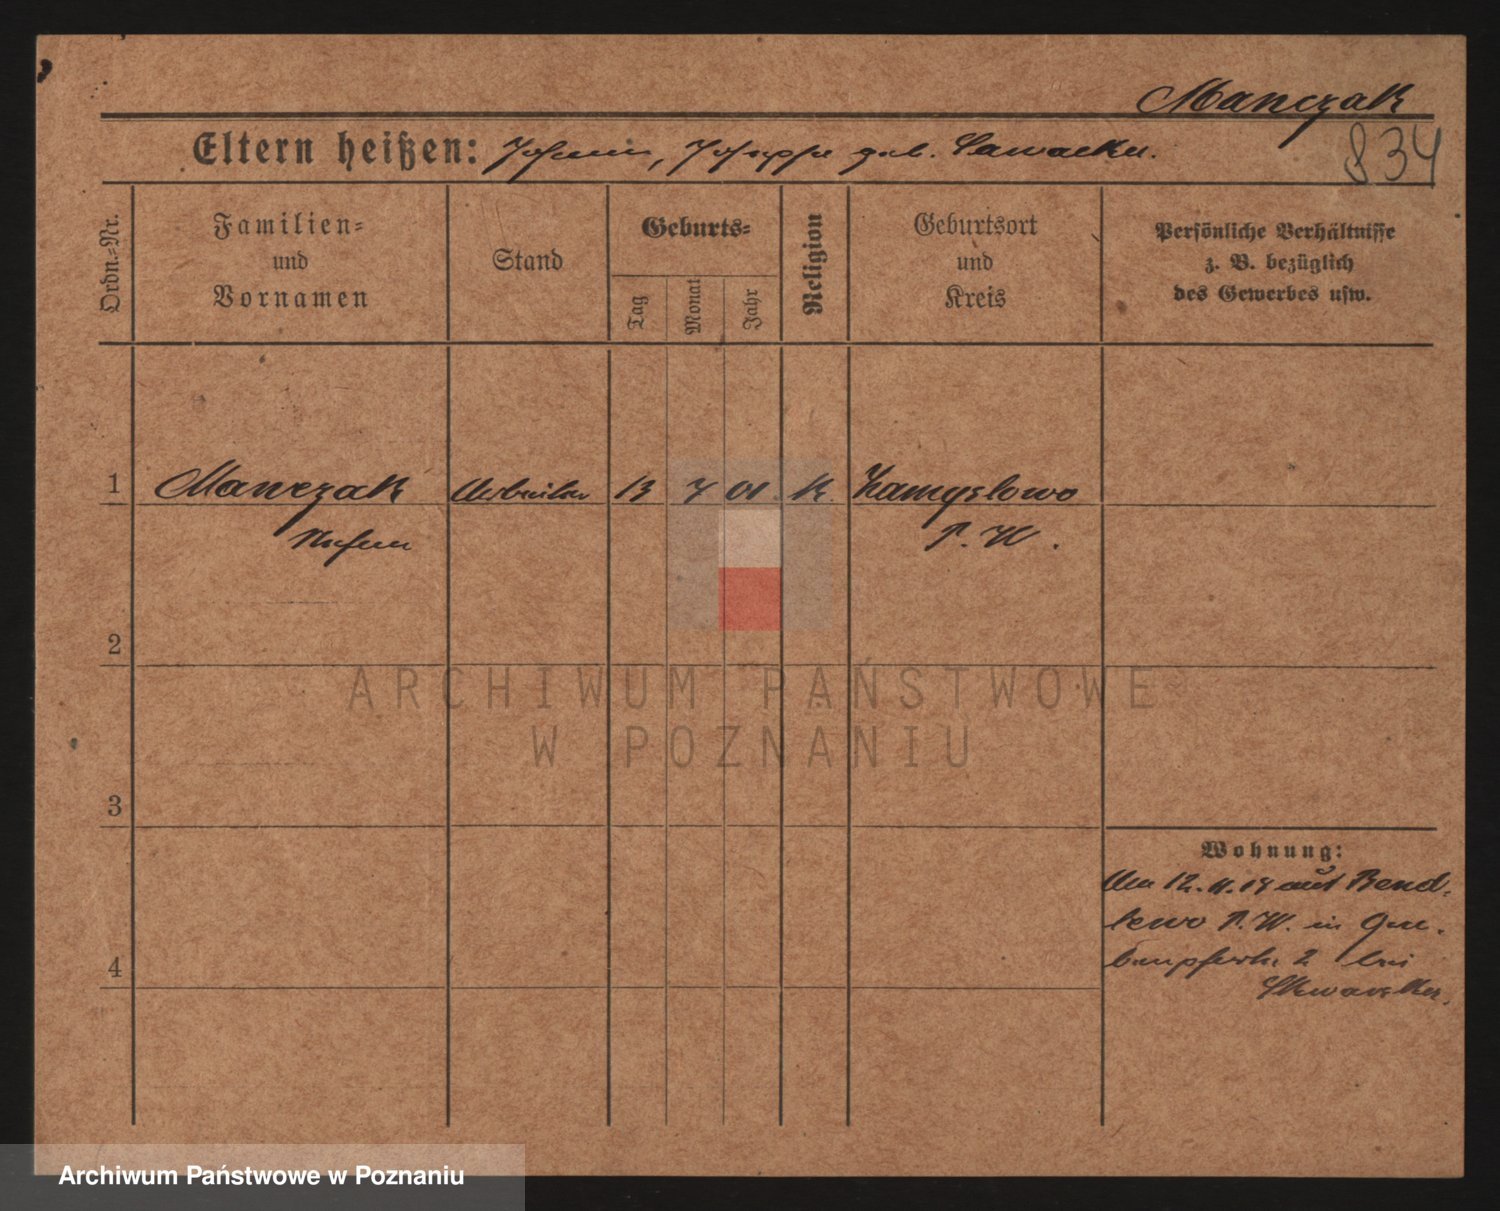 Manczak
834
Eltern heißen: Johann, Josepha geb. Sawacka.
Ordn.-Nr.
Familien-
und
Vornamen
Stand
Geburts-
Tag
Monat
Jahr
Religion
Geburtsort
und
Kreis
Persönliche Verhältnisse
z. B. bezüglich
des Gewerbes usw.
1 Manczak Arbeiter 13 7 01. K. Zamyslowo
P. W.
2
3
4
Wohnung:
Am 12.11.19 aus Bend-
lewo P. W. in
2 bei
ARCHIWUM PAŃSTWOWE
W POZNANIU
Archiwum Państwowe w Poznaniu